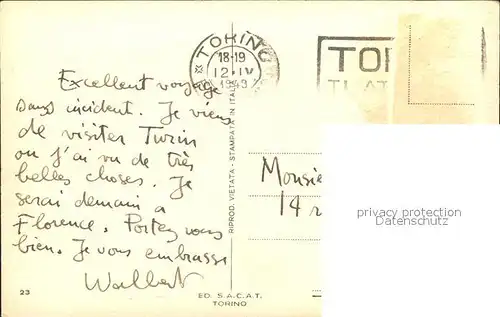 TORINO
18-19
12·IV
1949
TOR
TI AT
Excellent voyage
sans incident. Je viens
de visiter Turin
ou j'ai vu de très
belles choses. Je
serai demain a
Florence. Portez vous
bien. Je vous embrasse
Walbert
RIPROD. VIETATA - STAMPATA IN ITALIA
Monsie
14 r
privacy protection
Datenschutz
23
ED. S.A.C.A.T.
TORINO